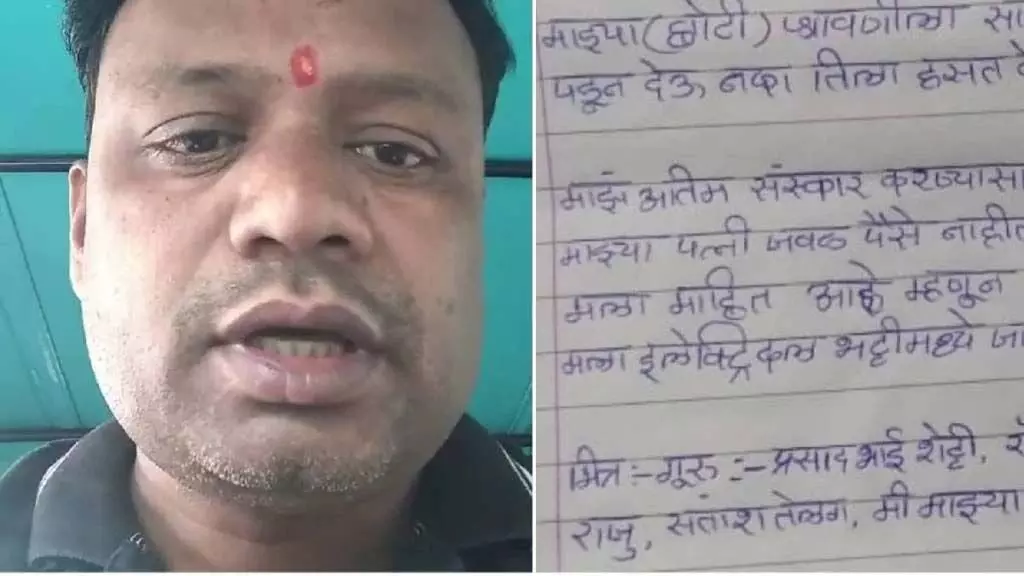 माझ्या (छोटी) श्रावणीला सा
पडून देऊ नका तिला हसत ठे
माझं अंतिम संस्कार करण्यासा
माझ्या पत्नी जवळ पैसे नाहीत
मला माहित आहे म्हणून
मला इलेक्ट्रिकल भट्टीमध्ये जा
मित्र :- गुरु :- प्रसादभाई शेट्टी,
राजु, संतोष तेलंग, मी माझ्या